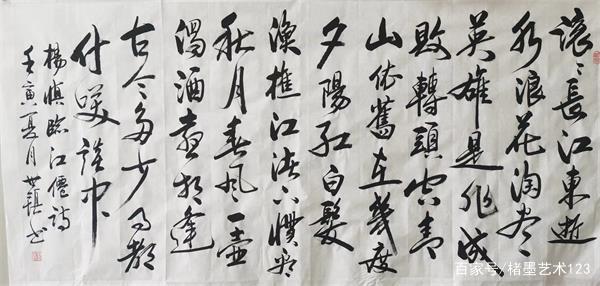 滚〻長江東逝
水浪花淘尽
英雄是非成
敗轉頭空青
山依舊在幾度
夕陽紅白髮
漁樵江渚上慣看
秋月春風一壺
濁酒喜相逢
古今多少事都
付笑談中
楊慎臨江僊詩
壬寅夏月书
百家号/楮墨艺术123